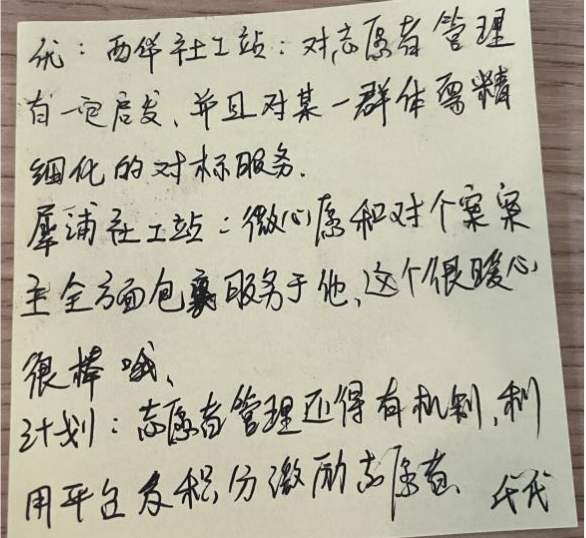 优：西华社工站：对志愿者管理
有一定启发、并且对某一群体需精
细化的对标服务.
犀浦社工站：微心愿和对个案案
主全方面包裹服务于他,这个很暖心
很棒哦、
计划：志愿者管理还得有机制,利
用平台及积分激励志愿者、